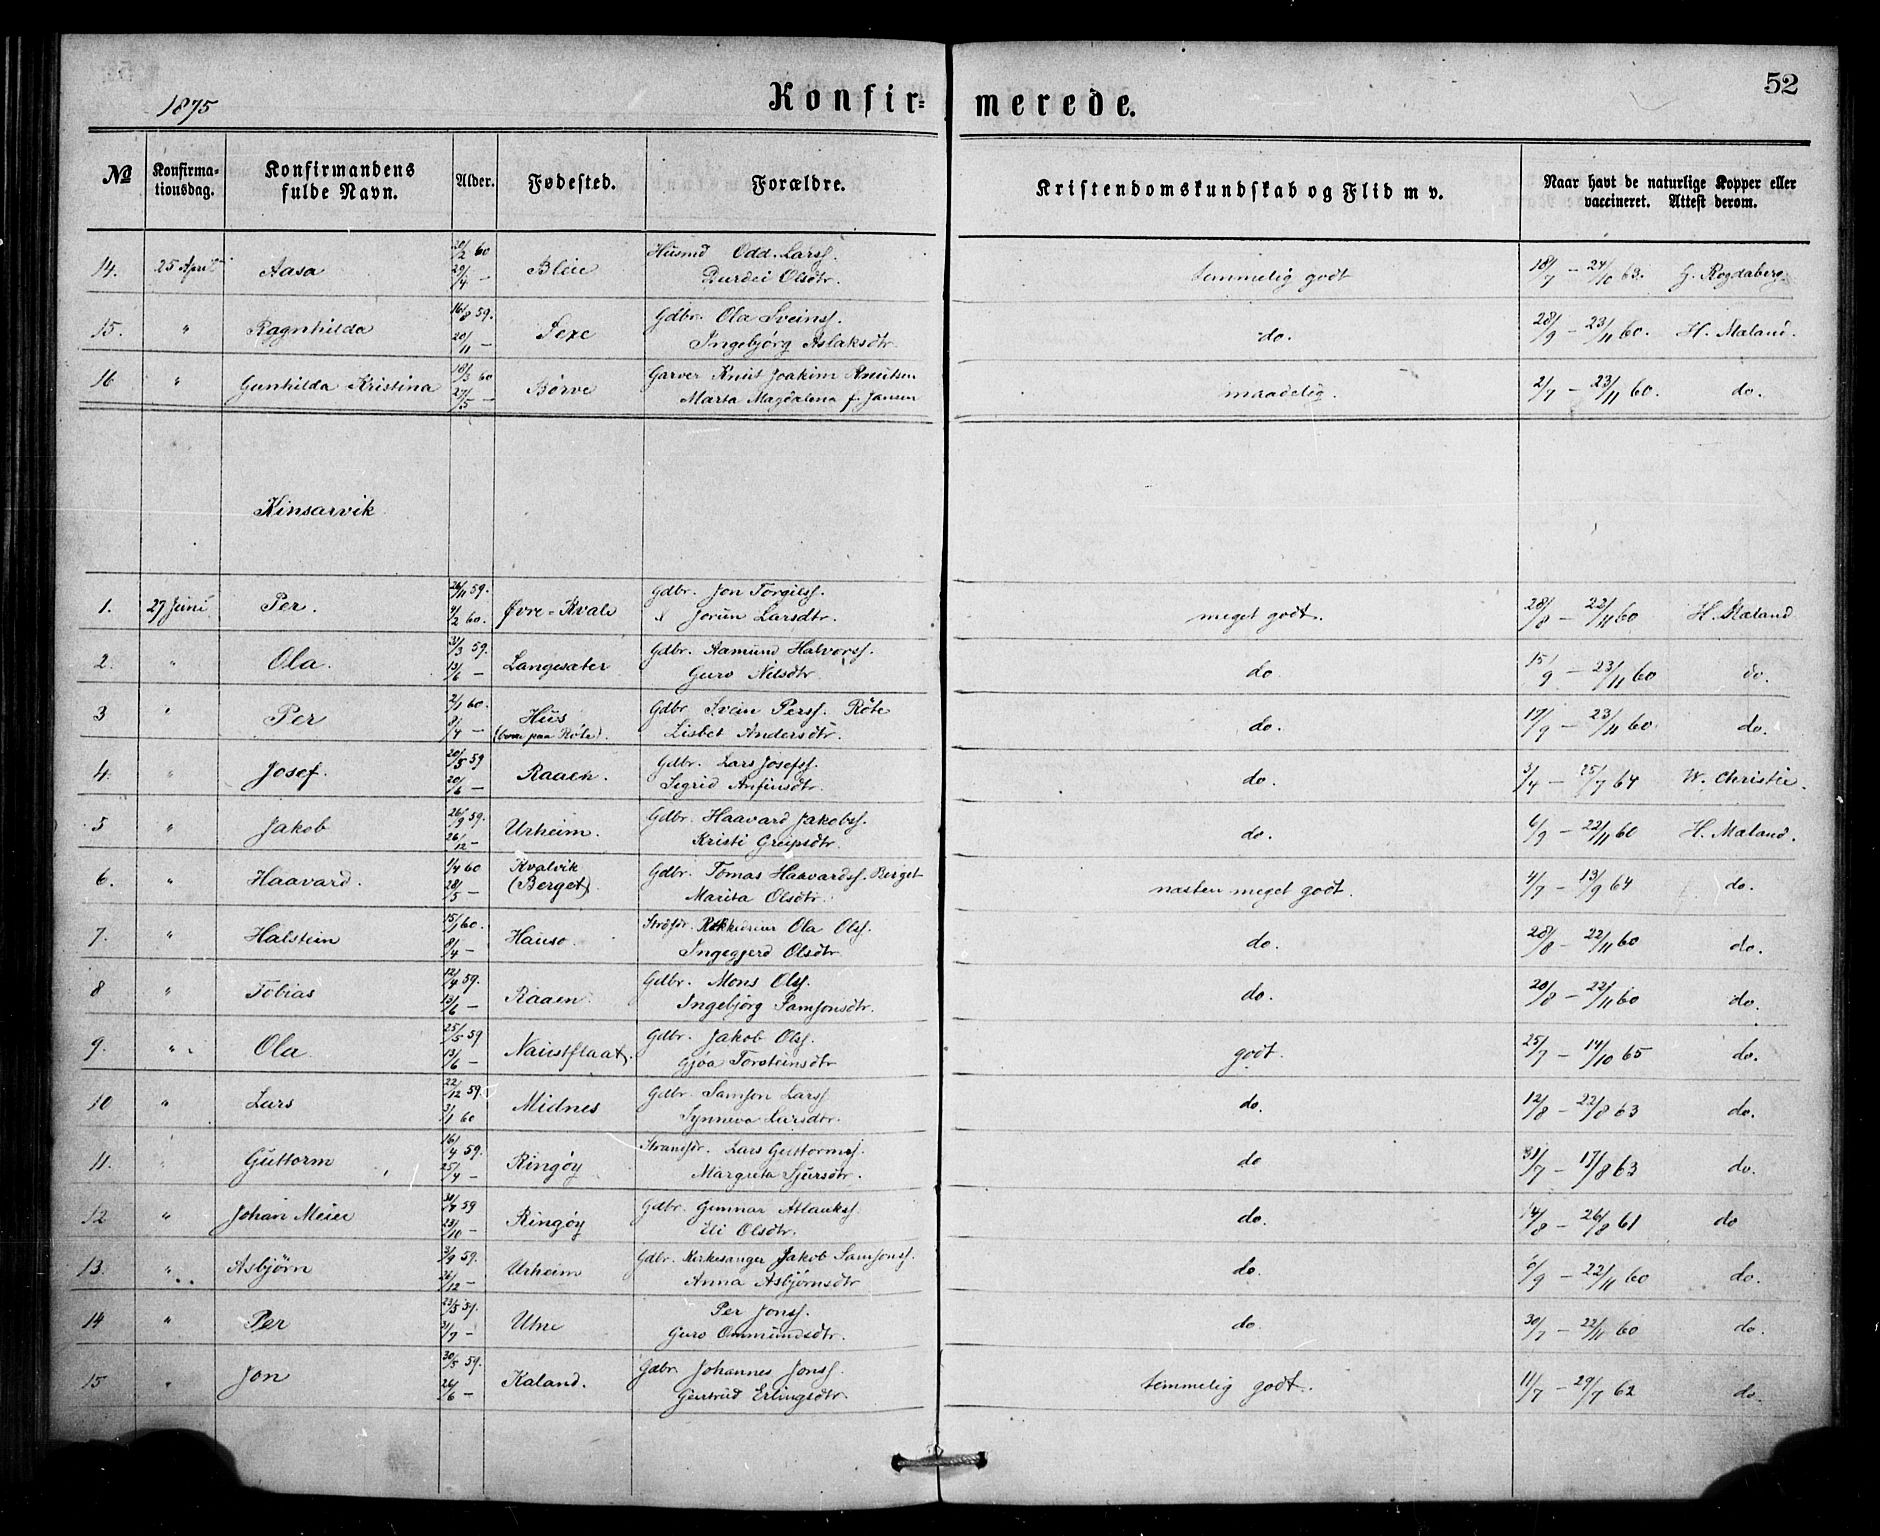 1875 Konfirmerede. 52
№ Konfirmationsdag. Konfirmandens fulde Navn. Alder. Fødested. Forældre. Kristendomskundskab og Flid m v. Naar havt de naturlige Kopper eller vaccineret. Attest derom.
14. 25 April Aasa 20/2 60 29/4 — Bleie Husmd Odd. Larss. temmelig godt 18/7 — 24/10 63. G. Rogdaberg
Durdei Olsdtr.
15. " Ragnhilda 16/8 59. 20/11 — Sexe Gdbr. Ola Sveins. do. 28/9 — 23/11 60. H. Mæland.
Ingebjörg Aslaksdtr.
16 " Gunhilda Kristina 18/3 60 27/5 — Börve Garver Knut Joakim Knutsen maadelig. 2/7 — 23/11 60. do.
Marta Magdalena f. Jansen
Kinsarvik
1. 27 Juni Per. 26/11 59. 4/2 60. Øvre-Kvale Gdbr. Jon Torgilss. meget godt. 28/8 — 22/11 60 H. Mæland
Jorun Larsdtr.
2. " Ola. 31/3 59. 13/6 — Langesæter Gdbr. Aamund Halvorss. do 15/9 — 23/11 60 do.
Guro Nilsdtr.
3 " Per 2/1 60. 8/4 — Hus Gdbr. Svein Perss. Röte do. 17/9 — 23/11 60. do.
(boer paa Röte). Lisbet Andersdtr.
4. " Josef. 20/5 59 20/6 — Raaen. Gdbr. Lars Josefss. do. 3/4 — 25/7 64 W. Christie.
Sigrid Arfinsdtr.
5 " Jakob 26/9 59. 26/12 — Urheim. Gdbr. Haavard Jakobss. do. 6/9 — 22/11 60 H. Mæland.
Kristi Greipsdtr.
6. " Haavard. 1/4 60 28/5 — Kvalvik Gdbr. Tomas Haavardss. Berget næsten meget godt. 4/7 — 13/9 64 do.
(Berget). Marita Olsdtr.
7. " Halstein 15/1 60. 8/4 — Hauso. Ola Olss. do. 28/8 — 22/11 60 do.
Ingegjerd Olsdtr
8 " Tobias 12/4 59. 13/6 — Raaen. Gdbr. Mons Olss. do. 20/8 — 22/11 60 do.
Ingebjörg Samsonsdtr.
9. " Ola 25/5 59 13/6 — Naustflaat. Gdbr. Jakob Olss. godt. 25/7 — 14/10 65 do.
Gjöa Torsteinsdtr
10 " Lars 22/12 59. 3/1 60 Midnes Gdbr. Samson Larss do. 12/8 — 22/8 63 do.
Synneva
11. " Guttorm 16/4 59. 25/4 — Ringöy Strandsr. Lars Guttormss. do 31/7 — 17/8 63 do.
Margreta Sjursdtr.
12 " Johan Meier 59 23/10 — Ringöy Gdbr. Gunnar Atlaukss. do. 14/8 — 26/8 61 do
Eli Olsdtr.
13. " Asbjörn 3/9 59. 26/12 — Urheim Gdbr. Kirkesanger Jakob Samsonss. do. 6/9 — 22/11 60 do.
Anna Asbjörnsdtr
14 " Per 23/5 59. 21/9 — Utne Per Jonss. do. 30/7 — 22/11 60 do.
Guro Ommundsdtr.
15 " Jon 30/5 59. 26/6 — Kaland. Gdbr. Johannes Jonss. temmelig godt. 11/7 — 29/7 62 do.
Gertrud Erlingsdtr.